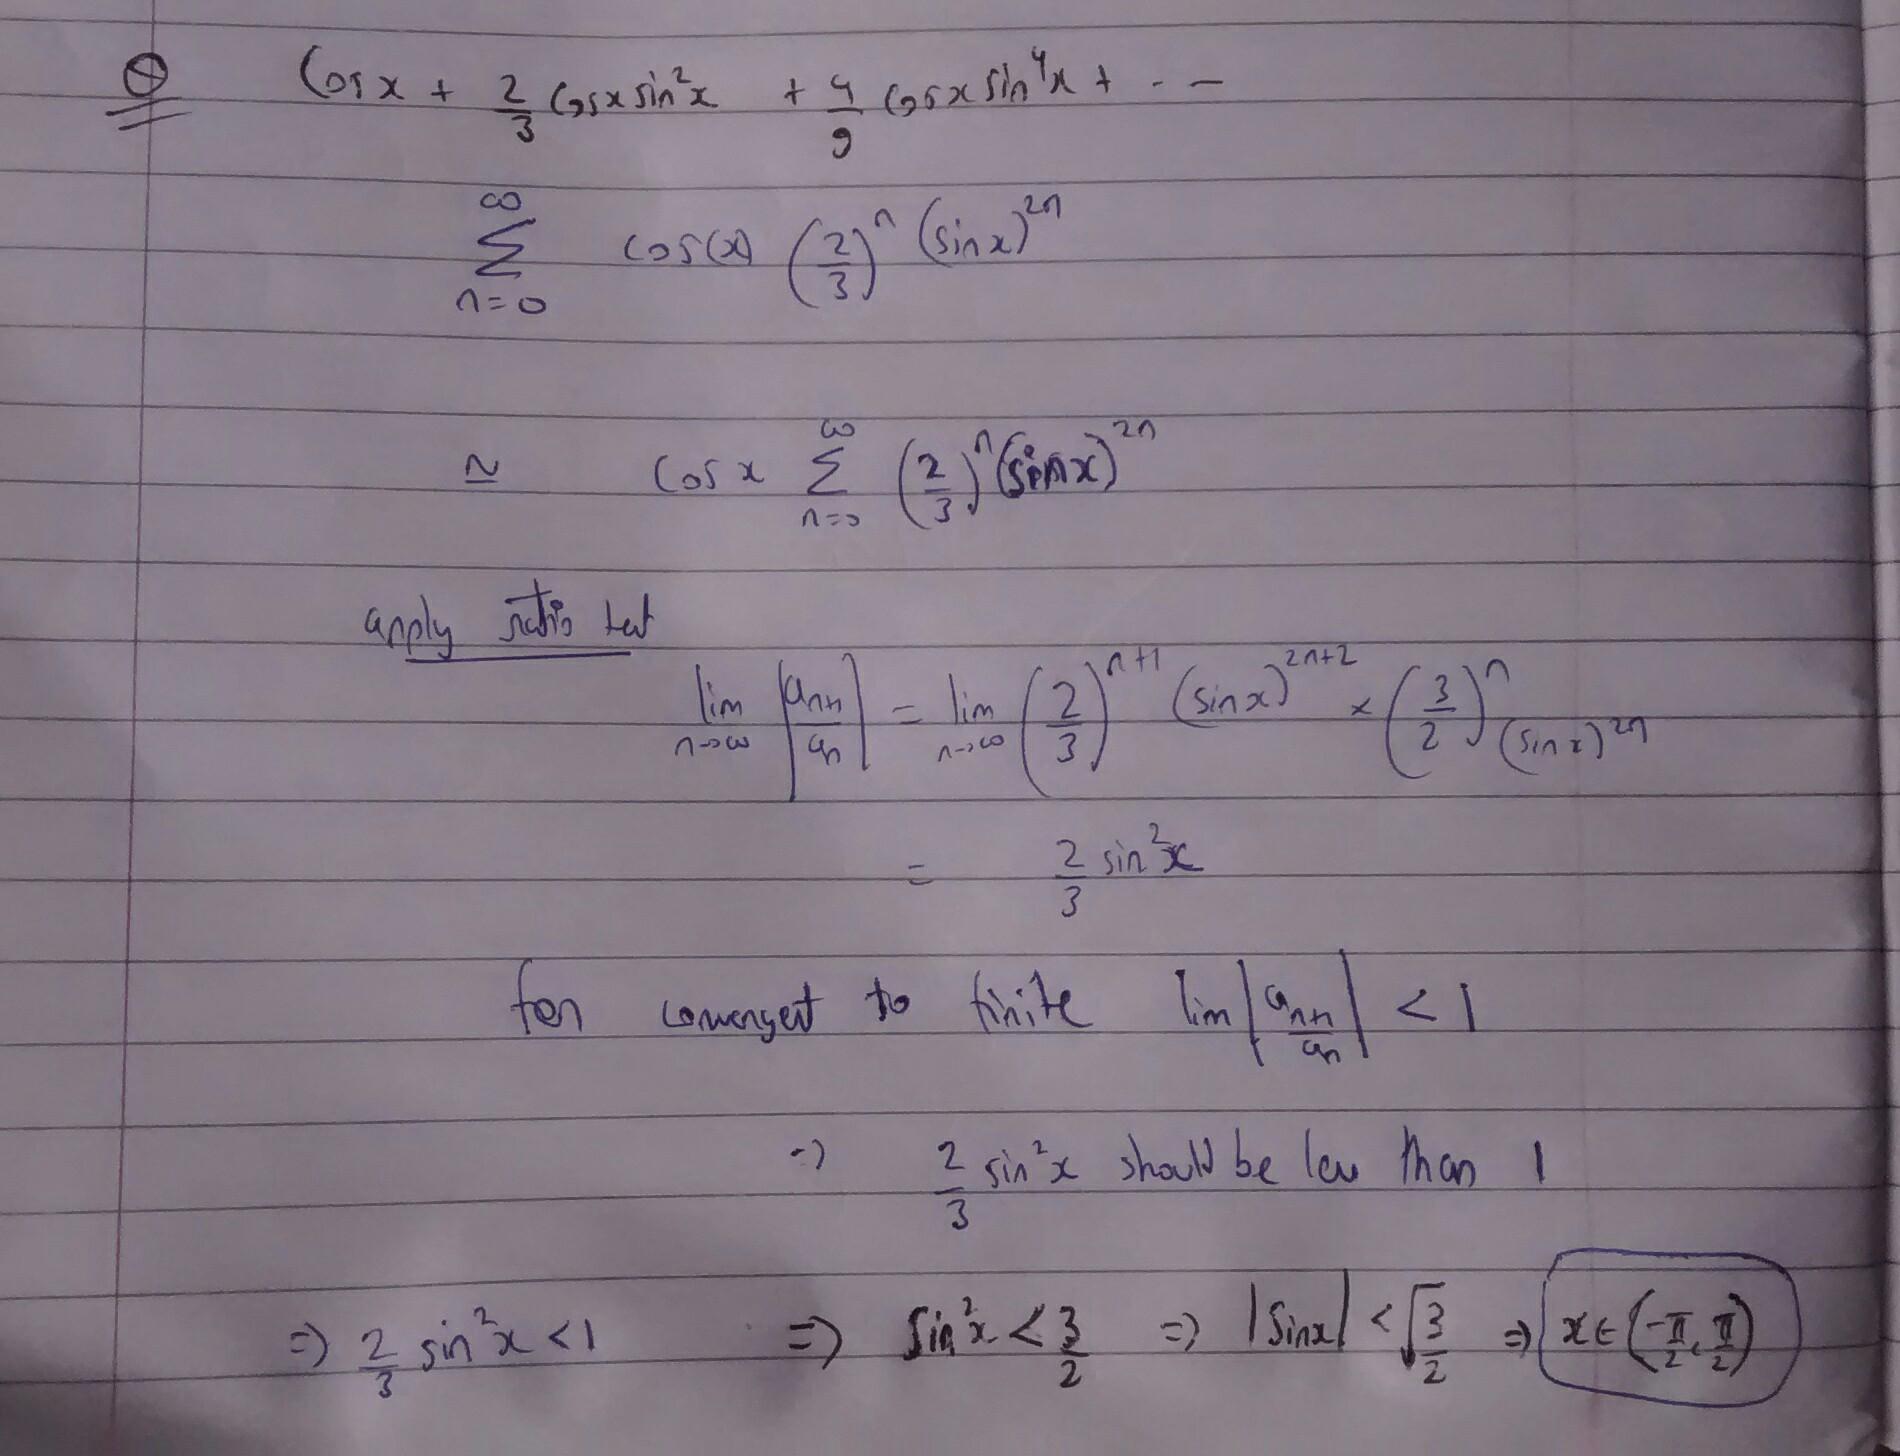 Q Cos x + 2/3 Cos x sin²x + 4/9 Cos x sin⁴x + - -
∞ Σ n=0 cos(x) (2/3)ⁿ (sin x)²ⁿ
≃ Cos x ∞ Σ n=0 (2/3)ⁿ (sin x)²ⁿ
apply ratio test
lim n→∞ |aₙ₊₁/aₙ| = lim n→∞ (2/3)ⁿ⁺¹ (sin x)²ⁿ⁺² × (3/2)ⁿ (sin x)²ⁿ
= 2/3 sin²x
for convergent to finite lim |aₙ₊₁/aₙ| < 1
⇒ 2/3 sin²x should be less than 1
⇒ 2/3 sin²x < 1 ⇒ sin²x < 3/2 ⇒ |sin x| < √3/2 ⇒ x ∈ (-π/2, π/2)